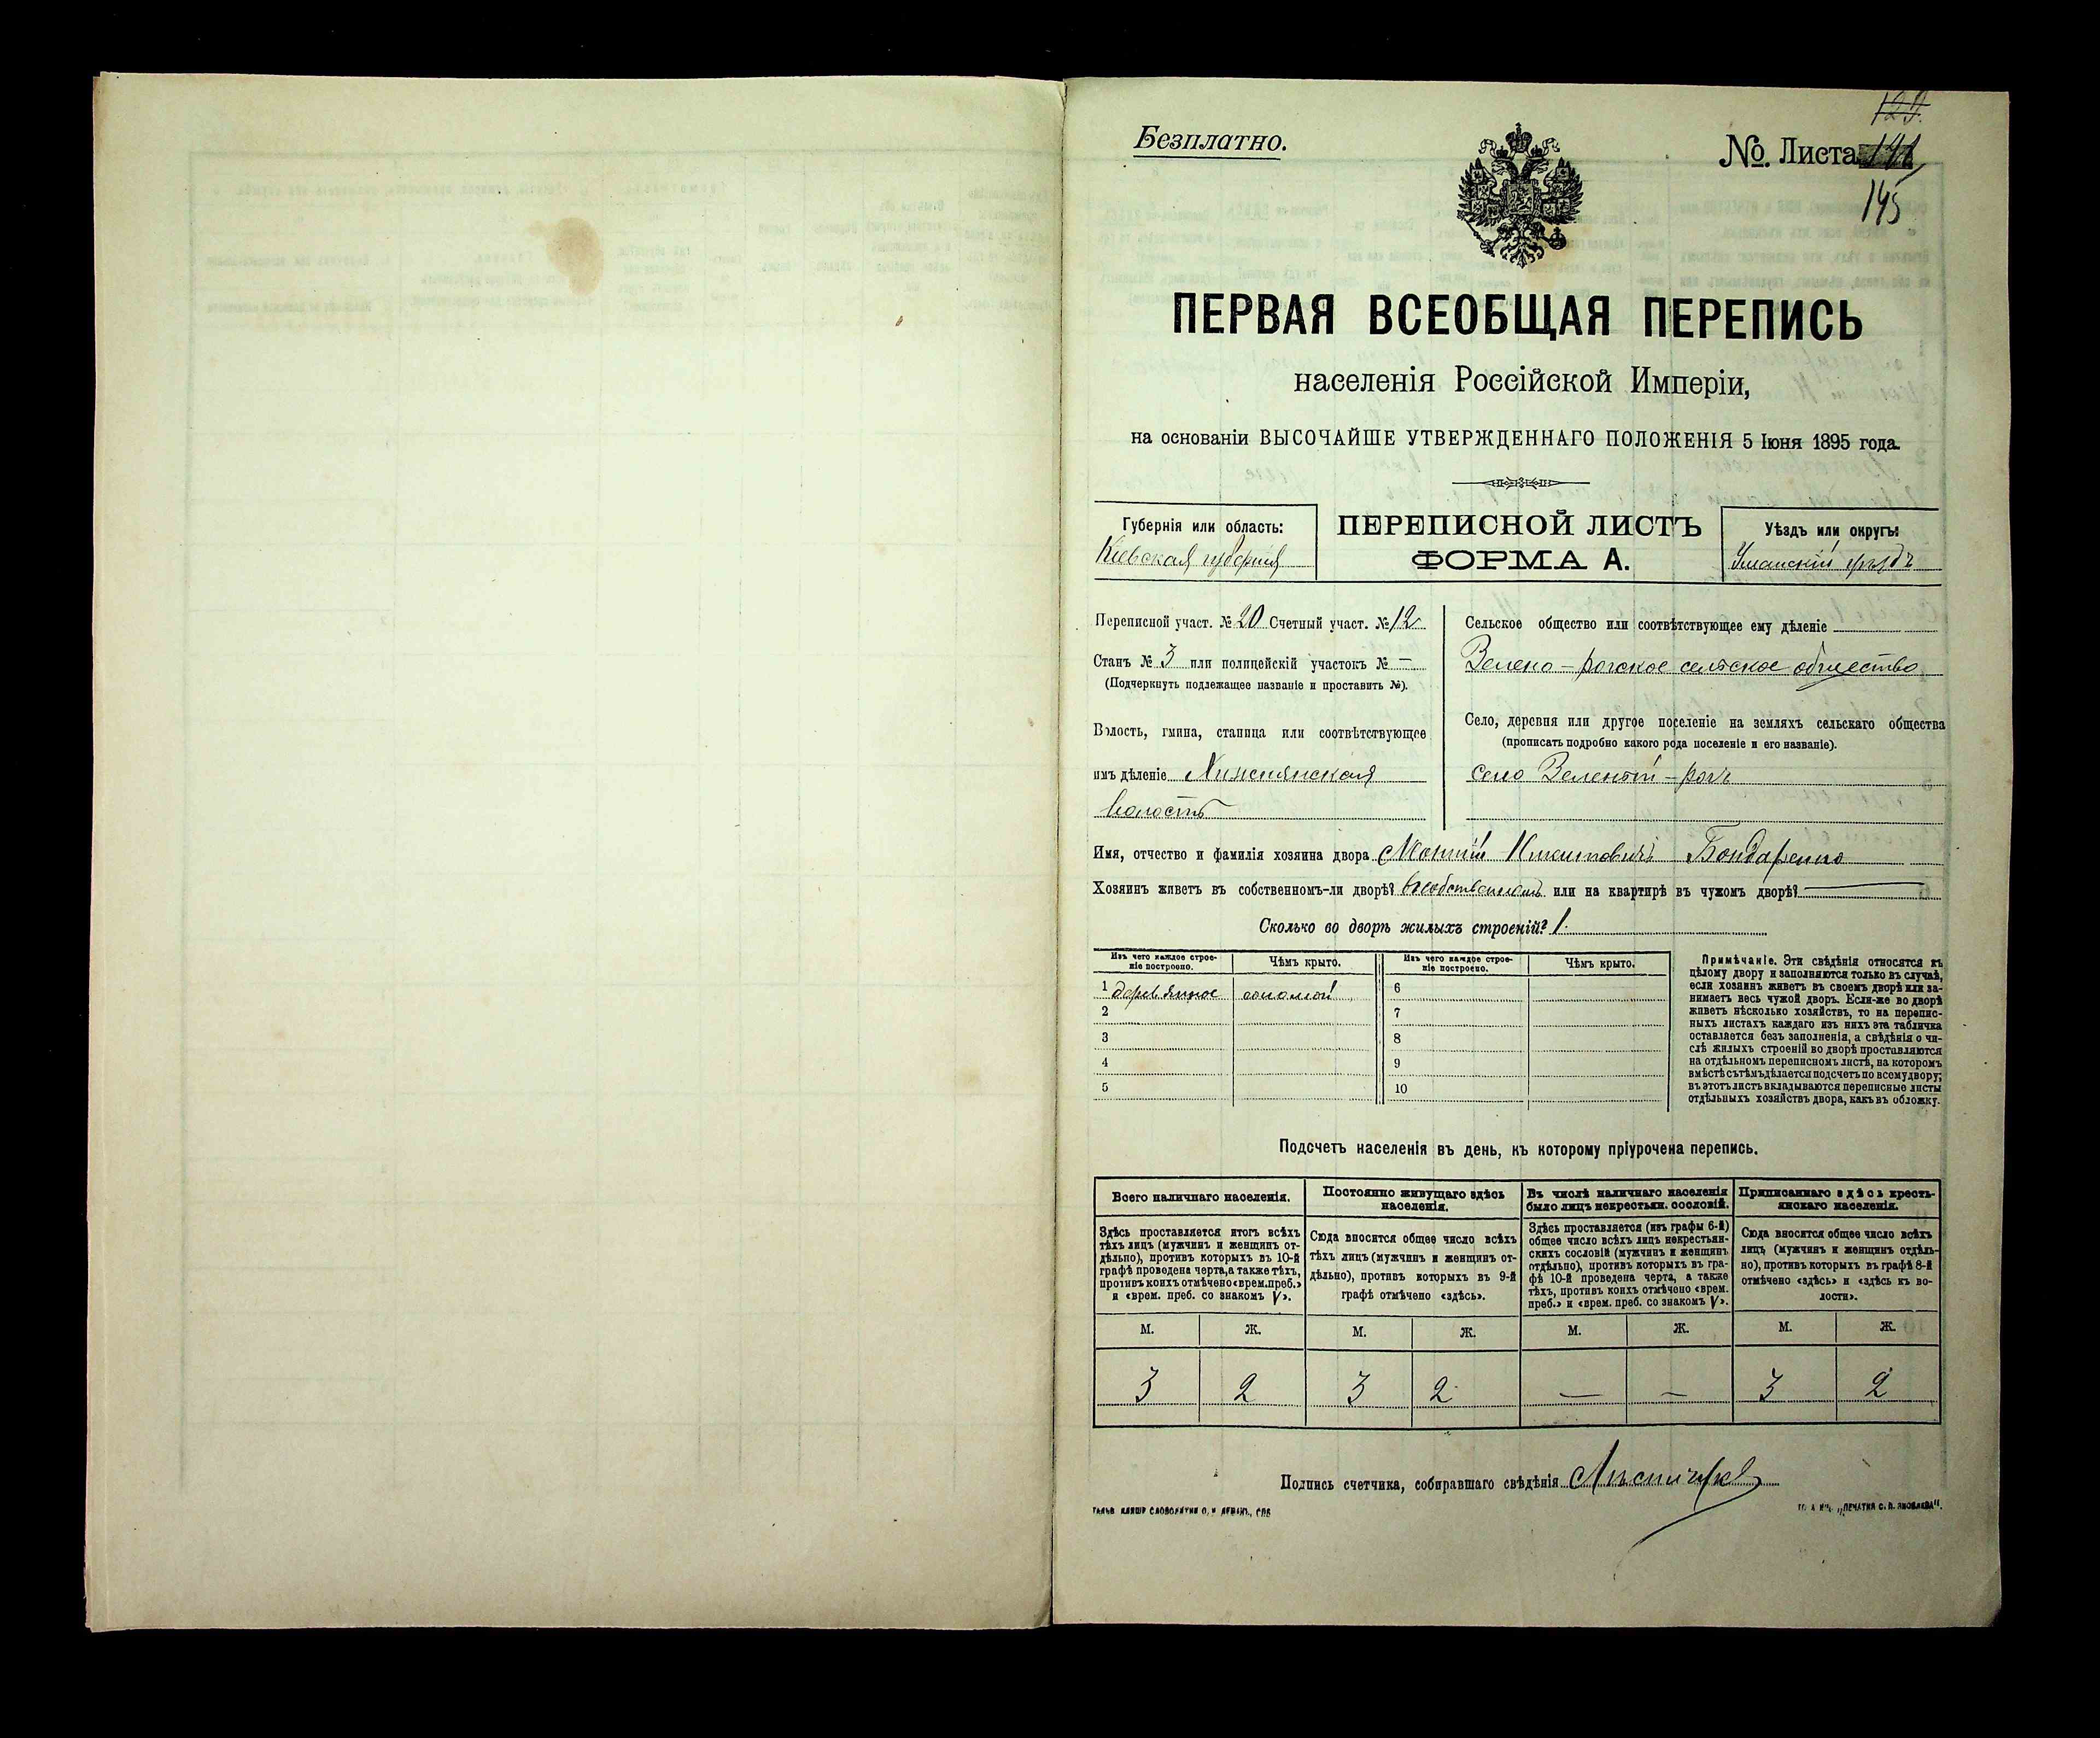 129.
Безплатно.
№. Листа
145
ПЕРВАЯ ВСЕОБЩАЯ ПЕРЕПИСЬ
населенія Россійской Имперіи,
на основаніи ВЫСОЧАЙШЕ УТВЕРЖДЕННАГО ПОЛОЖЕНІЯ 5 Іюня 1895 года.
Губернія или область:
Кіевская губернія
ПЕРЕПИСНОЙ ЛИСТЪ
ФОРМА А.
Уѣздъ или округъ:
Уманскій уѣздъ
Переписной участ. № 20 Счетный участ. № 12
Станъ № 3 или полицейскій участокъ № —
(Подчеркнуть подлежащее названіе и проставить №).
Волость, гмина, станица или соотвѣтствующее
имъ дѣленіе
волость
Сельское общество или соотвѣтствующее ему дѣленіе
Зелено-рогское сельское общество
Село, деревня или другое поселеніе на земляхъ сельскаго общества
(прописать подробно какого рода поселеніе и его названіе).
село Зеленый-рогъ
Имя, отчество и фамилія хозяина двора Никитовичъ Бондаренко
Хозяинъ живетъ въ собственномъ-ли дворѣ? въ собственномъ или на квартирѣ въ чужомъ дворѣ? —
Сколько во дворѣ жилыхъ строеній? 1.
Изъ чего каждое строеніе построено.
Чѣмъ крыто.
Изъ чего каждое строеніе построено.
Чѣмъ крыто.
1 деревянное соломой 6
2 7
3 8
4 9
5 10
Примѣчаніе. Эти свѣдѣнія относятся къ
цѣлому двору и заполняются только въ случаѣ,
если хозяинъ живетъ въ своемъ дворѣ или за-
нимаетъ весь чужой дворъ. Если-же во дворѣ
живетъ нѣсколько хозяйствъ, то на перепис-
ныхъ листахъ каждаго изъ нихъ эта табличка
оставляется безъ заполненія, а свѣдѣнія о чи-
слѣ жилыхъ строеній во дворѣ проставляются
на отдѣльномъ переписномъ листѣ, на которомъ
вмѣстѣ съ тѣмъ дѣлается подсчетъ по всему двору;
въ этотъ листъ вкладываются переписные листы
отдѣльныхъ хозяйствъ двора, какъ въ обложку.
Подсчетъ населенія въ день, къ которому пріурочена перепись.
Всего наличнаго населенія.
Здѣсь проставляется итогъ всѣхъ
тѣхъ лицъ (мужчинъ и женщинъ от-
дѣльно), противъ которыхъ въ 10-й
графѣ проведена черта, а также тѣхъ,
противъ коихъ отмѣчено «врем. преб.»
и «врем. преб. со знакомъ V».
Постоянно живущаго здѣсь
населенія.
Сюда вносится общее число всѣхъ
тѣхъ лицъ (мужчинъ и женщинъ от-
дѣльно), противъ которыхъ въ 9-й
графѣ отмѣчено «здѣсь».
Въ числѣ наличнаго населенія
было лицъ некрестьян. сословій.
Здѣсь проставляется (изъ графы 6-й)
общее число всѣхъ лицъ некрестьян-
скихъ сословій (мужчинъ и женщинъ
отдѣльно), противъ которыхъ въ гра-
фѣ 10-й проведена черта, а также
тѣхъ, противъ коихъ отмѣчено «врем.
преб.» и «врем. преб. со знакомъ V».
Приписаннаго здѣсь кресть-
янскаго населенія.
Сюда вносится общее число всѣхъ
лицъ (мужчинъ и женщинъ отдѣль-
но), противъ которыхъ въ графѣ 8-й
отмѣчено «здѣсь» и «здѣсь къ во-
лости».
М. Ж. М. Ж. М. Ж. М. Ж.
3 2 3 2 — — 3 2
Подпись счетчика, собиравшаго свѣдѣнія